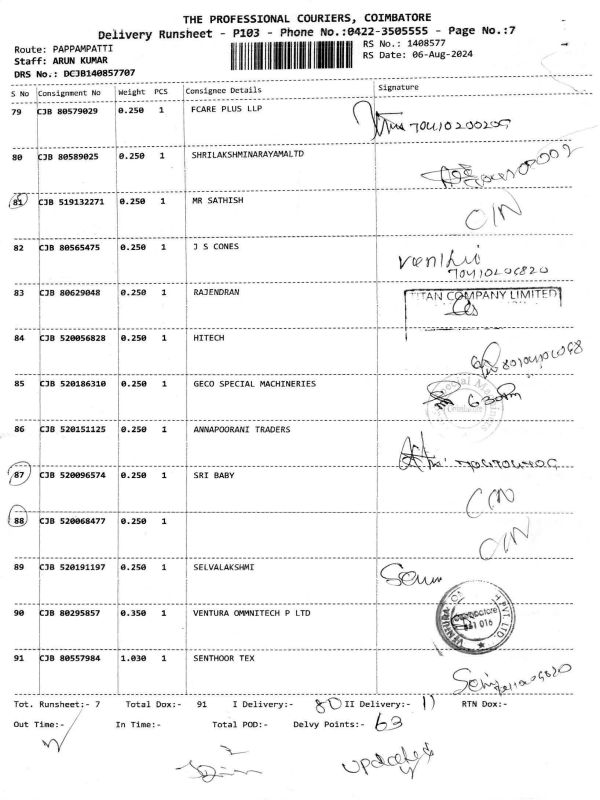 THE PROFESSIONAL COURIERS, COIMBATORE
Delivery Runsheet - P103 - Phone No.:0422-3505555 - Page No.:7
Route: PAPPAMPATTI
RS No.: 1408577
Staff: ARUN KUMAR
RS Date: 06-Aug-2024
DRS No.: DCJB140857707
S No Consignment No Weight PCS Consignee Details Signature
79 CJB 80579029 0.250 1 FCARE PLUS LLP
80 CJB 80589025 0.250 1 SHRILAKSHMINARAYAMALTD
81 CJB 519132271 0.250 1 MR SATHISH O/N
82 CJB 80565475 0.250 1 J S CONES
83 CJB 80629048 0.250 1 RAJENDRAN TITAN COMPANY LIMITED
84 CJB 520056828 0.250 1 HITECH
85 CJB 520186310 0.250 1 GECO SPECIAL MACHINERIES
86 CJB 520151125 0.250 1 ANNAPOORANI TRADERS
87 CJB 520096574 0.250 1 SRI BABY
88 CJB 520068477 0.250 1 O/N
89 CJB 520191197 0.250 1 SELVALAKSHMI
90 CJB 80295857 0.350 1 VENTURA OMMNITECH P LTD
91 CJB 80557984 1.030 1 SENTHOOR TEX
Tot. Runsheet:- 7 Total Dox:- 91 I Delivery:- 80 II Delivery:- 11 RTN Dox:-
Out Time:- In Time:- Total POD:- Delvy Points:- 63
updated